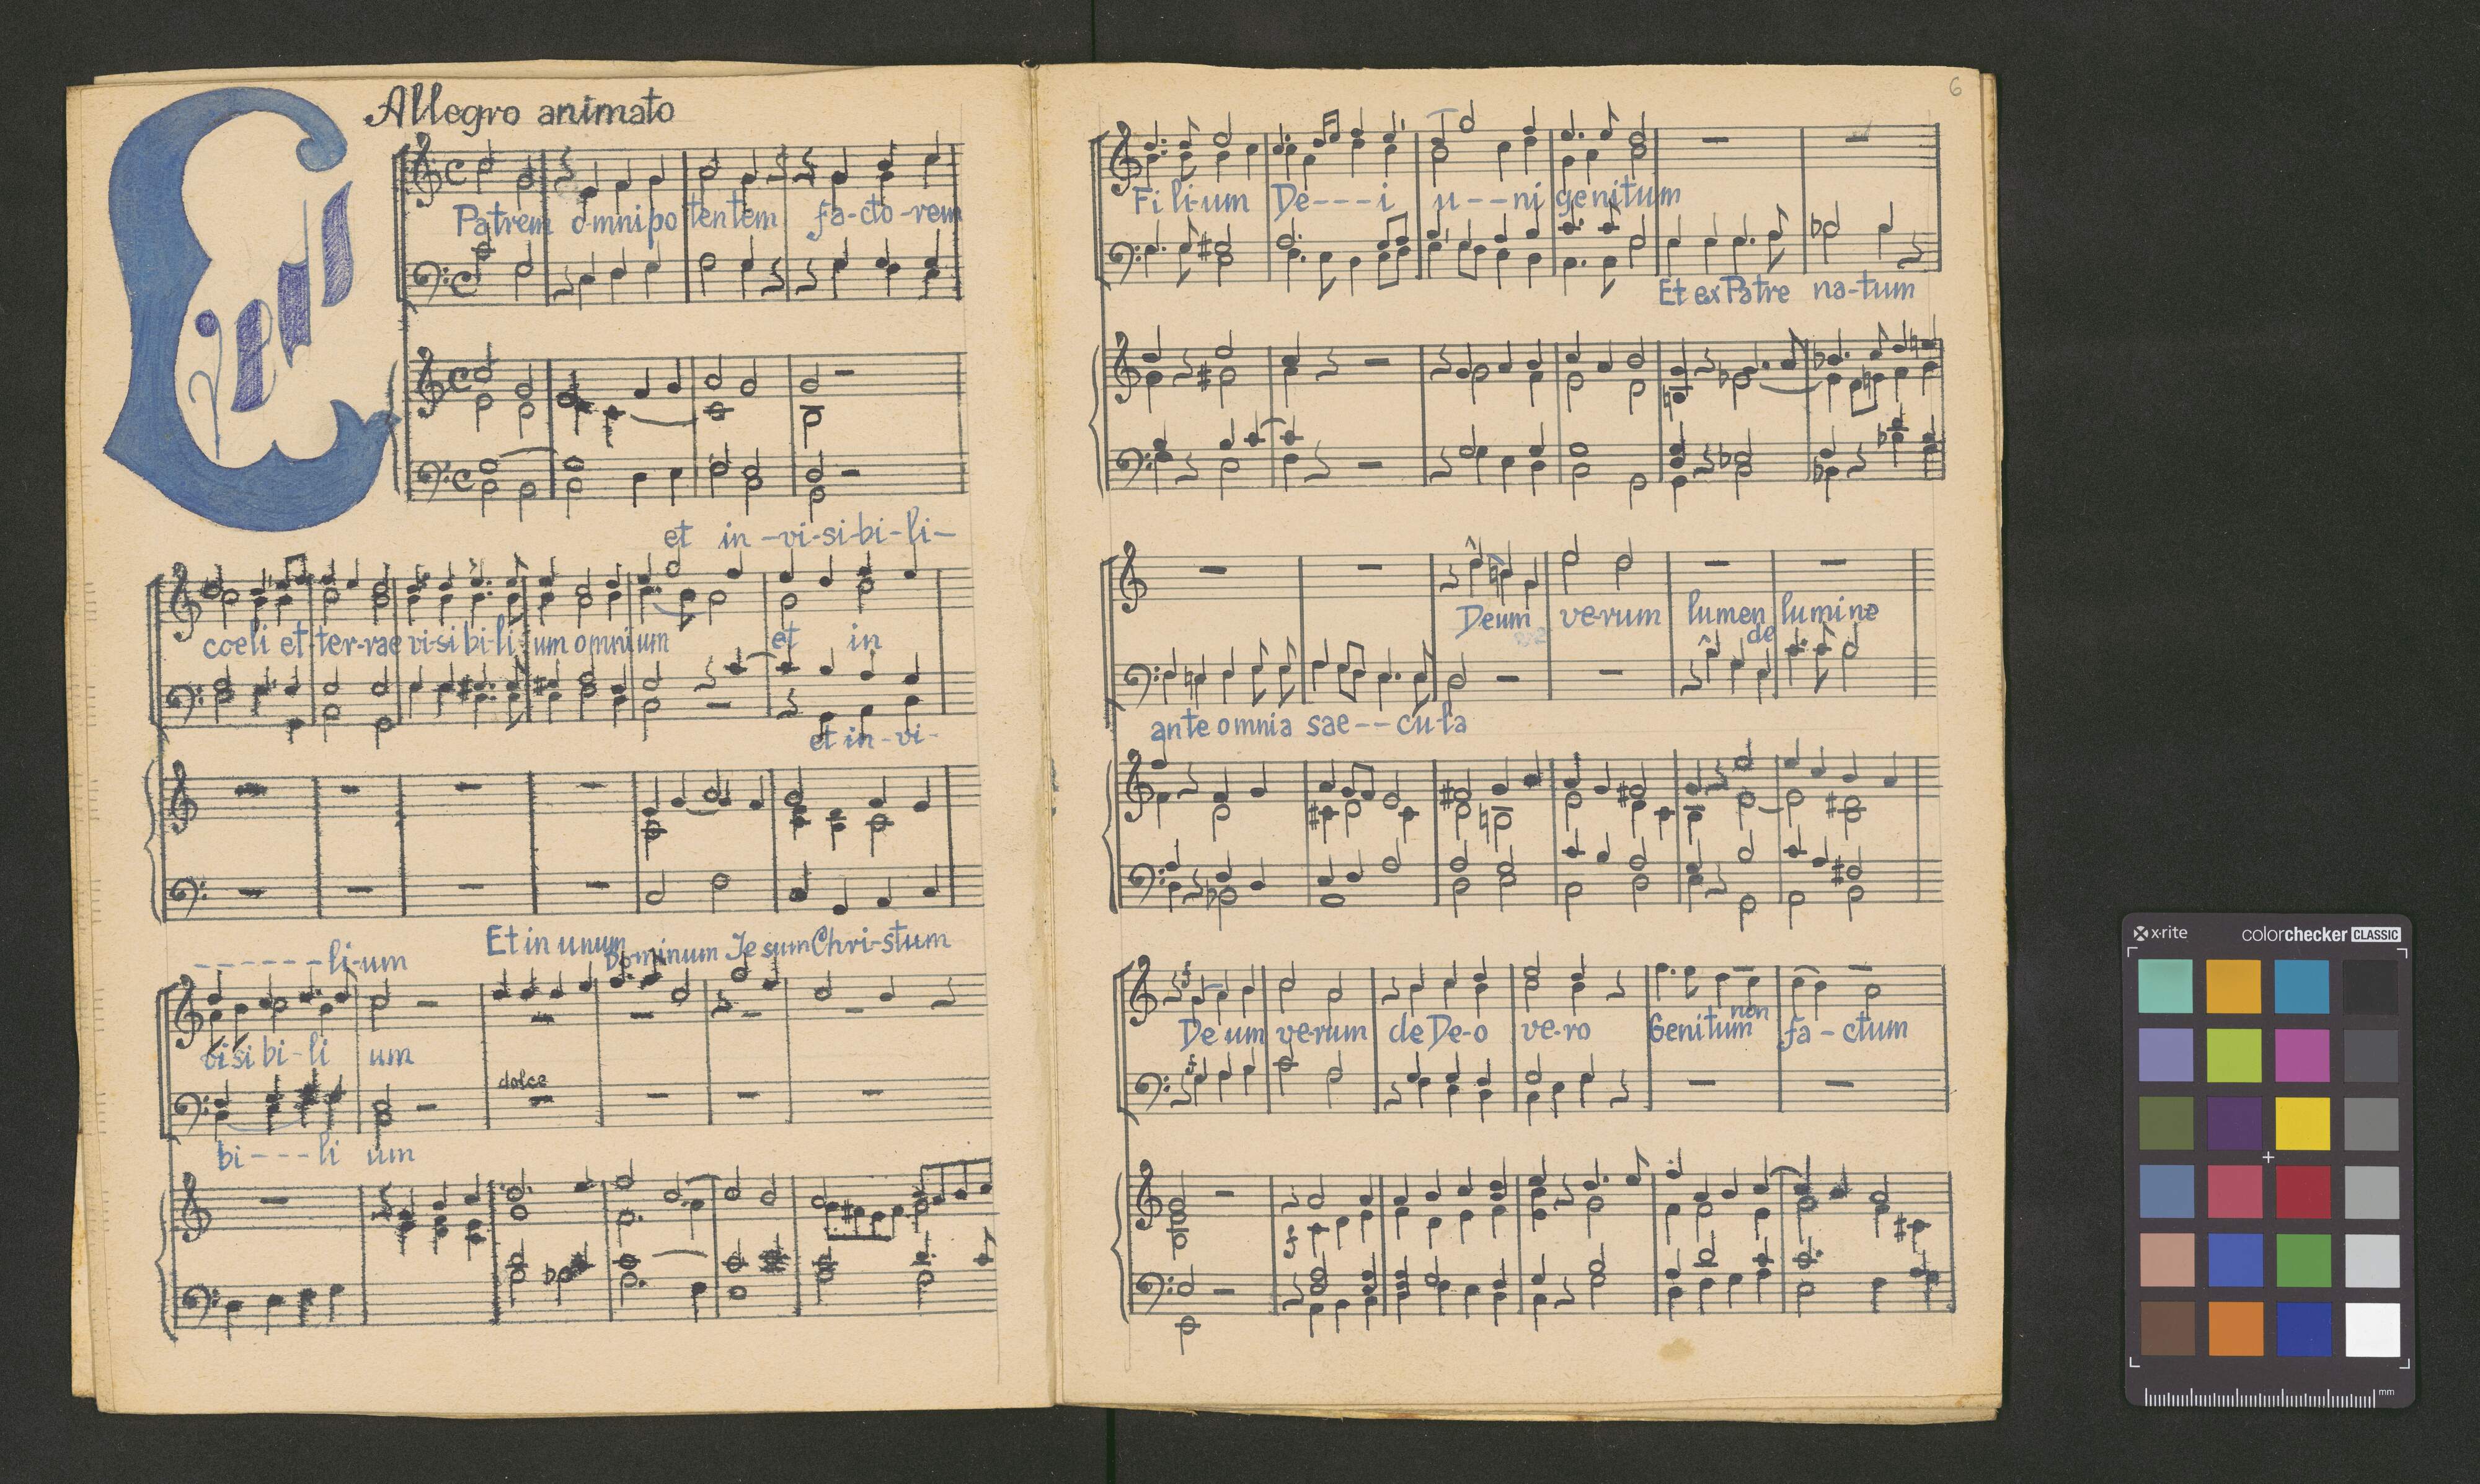 Allegro animato
Patrem o-mnipo tentem fa-cto-rem
et in-vi-si-bi-li-
coeli et-ter-rae vi-si bi-li-um omnium et in
et in-vi-
Et in unum Dominum Jesum Chri-stum
-------li-um
visi bi-li um
dolce
bi----li um
6
Fi li-um De---i u--ni genitum
Et ex Patre na-tum
Deum verum lumen de lumine
ante omnia sae--cula
De um ve-rum de De-o ve-ro Genitum non fa-ctum
x·rite colorchecker CLASSIC
mm